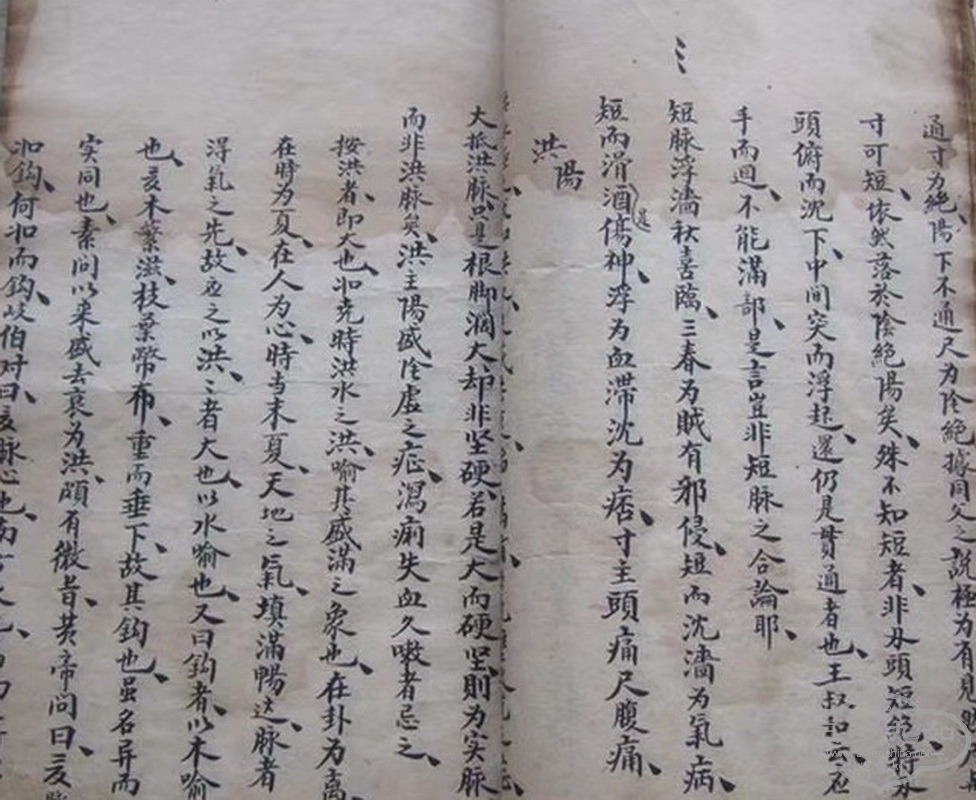 通寸为絕陽下不通尺为陰絕據同父之說極为有見
寸可短依然落於陰絕陽矣殊不知短者非尽頭短絕特
頭俯而沈下中间突而浮起還仍是貫通者也王叔和云应
手而迴不能滿部是言豈非短脉之合論耶
短脉浮濇秋喜臨三春为賊有邪侵短而沈濇为氣病
短而滑酒傷神浮为血滞沈为痞寸主頭痛尺腹痛
洪陽
大抵洪脉只是根脚濶大却非坚硬若是大而硬坚則为实脉
而非洪脉矣洪主陽盛陰虛之症瀉痢失血久嗽者忌之
按洪者即大也如尧時洪水之洪喻其盛滿之象也在卦为离
在時为夏在人为心時当未夏天地之氣填滿暢达脉者
得氣之先故应之以洪洪者大也以水喻也又曰鈎者以木喻
也夏木蘩滋枝葉幣布重而垂下故其鈎也虽名异而
实同也素问以来盛去衰为洪頗有微旨黄帝问曰夏脉
如鈎何如而鈎岐伯对曰夏脉心也南方火也